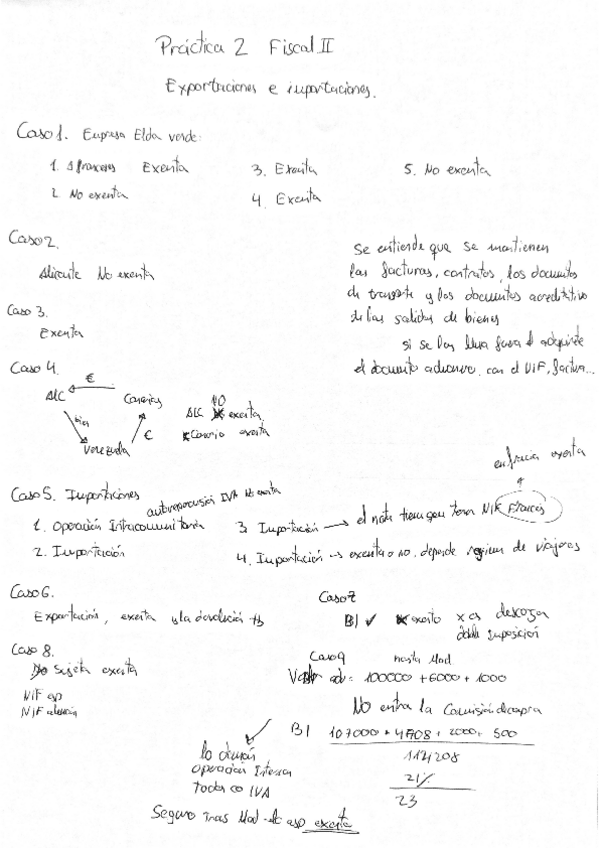 Práctica 2 Fiscal II
Exportaciones e importaciones.
Caso 1. Empresa Elda verde:
1. Exenta
2. No exenta
3. Exenta
4. Exenta
5. No exenta
Caso 2.
Alicante No exenta
Se entiende que se mantienen
las facturas, contratos, los documentos
de transporte y los documentos acreditativo
de las salidas de bienes
si se los lleva fuera el adquirente
el documento aduanero, con el NIF, factura...
Caso 3.
Exenta
Caso 4.
ALC € Canarias
bien €
Venezuela
ALC NO exenta
Canario exenta
Caso 5. Importaciones
autorepercusión IVA No exenta
1. Operación Intracomunitaria
2. Importación
3. Importación → el nota tiene que tener NIF Francés
en francia exenta
4. Importación → exenta o no, depende regimen de viajeros
Caso 6.
Exportación, exenta y la devolución
Caso 7
BI ✓ exento x es descarga
Caso 8.
No sujeta exenta
NIF esp
NIF
Caso 9 hasta Mad
Valor ad = 100000 + 6000 + 1000
No entra la Comisión de compra
BI 107000 + 4708 + 2000 + 500
114208
21%
23
lo demás
operación Interior
todas co IVA
Seguro tras Mad exenta